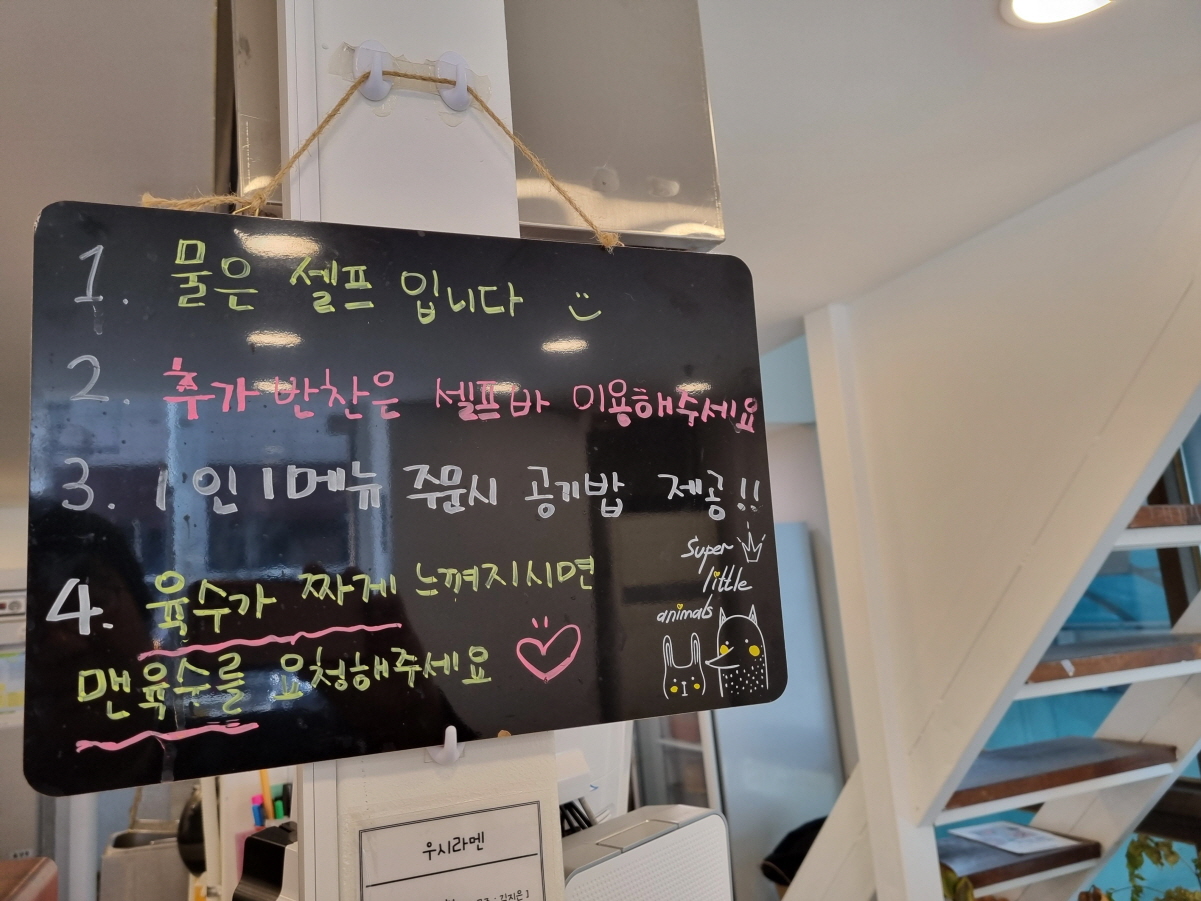 1. 물은 셀프 입니다
2. 추가 반찬은 셀프바 이용해주세요
3. 1인 1메뉴 주문시 공기밥 제공!!
4. 육수가 짜게 느껴지시면
맨육수를 요청해주세요
super
little
animals
우시라멘